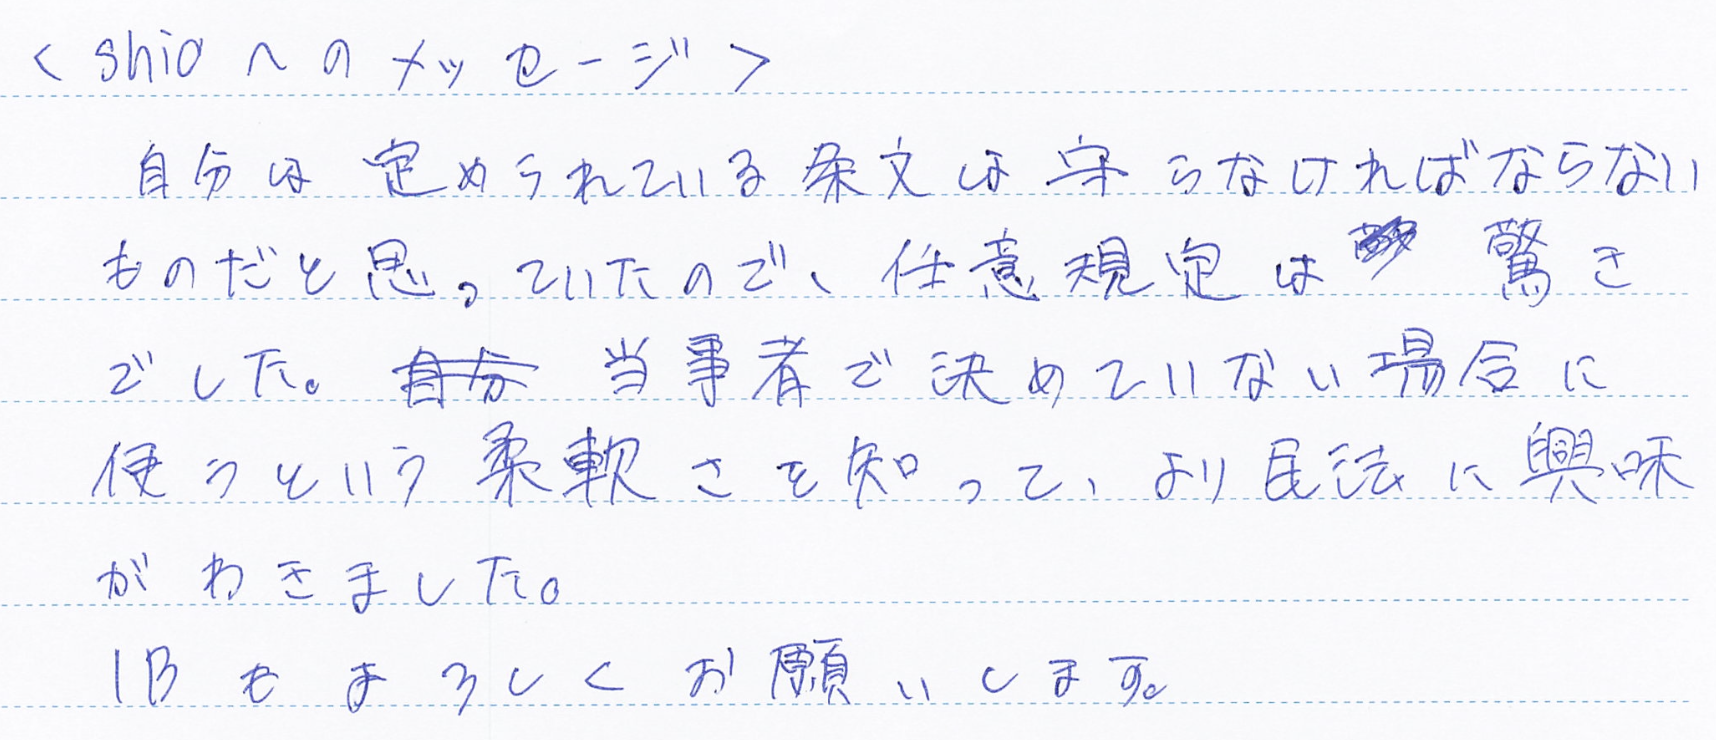 <shioへのメッセージ>
自分は定められている条文は守らなければならない
ものだと思っていたので、任意規定は驚き
でした。自分 当事者で決めていない場合に
使うという柔軟さを知って、より民法に興味
がわきました。
1Bもよろしくお願いします。